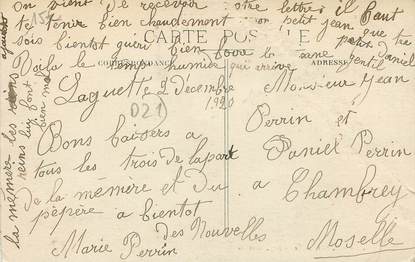 on vient de recevoir votre lettre il faut
te tenir bien chaudement mon petit jean que tu
sois bientot guéri bien petit daniel
CARTE POSTALE
Voila le temps humide qui arrive gentil
CORRESPONDANCE
ADRESSE
Laguette 2 décembre
1920
021
Bons baisers a
tous les trois de la part
de la mémère et du
pépère a bientot
des Nouvelles
Marie Perrin
la mémère les
reins lui font
bien mal
Monsieur Jean
Perrin et
Daniel Perrin
a Chambrey
Moselle